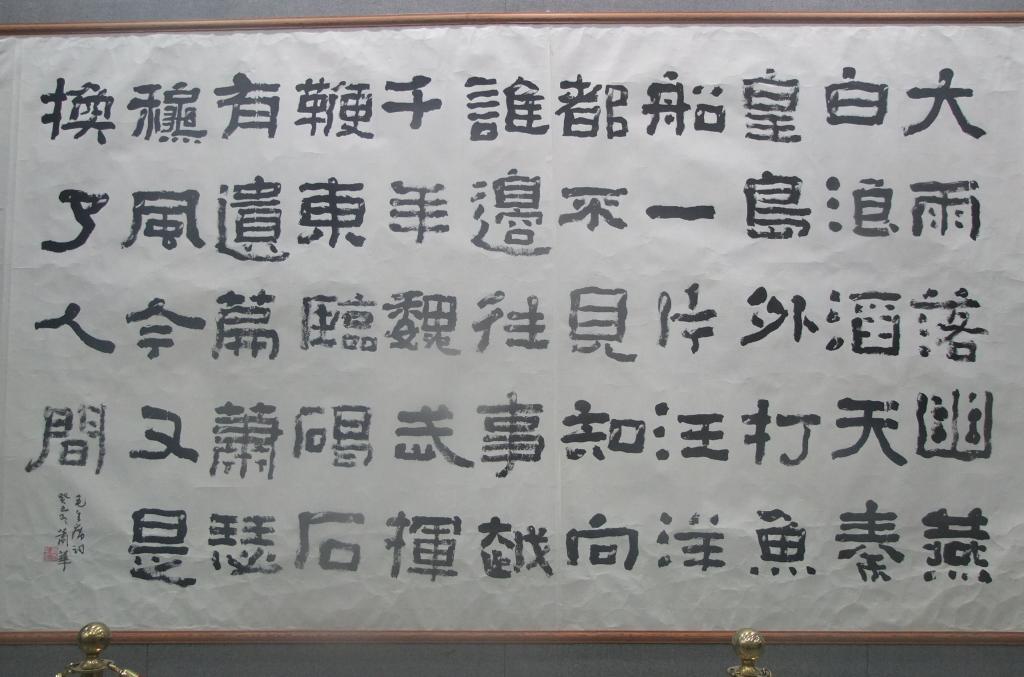 大雨落幽燕
白浪滔天秦
皇島外打魚
船一片汪洋
都不見知向
誰邊往事越
千年魏武揮
鞭東臨碣石
有遺篇蕭瑟
穐風今又是
換了人間
毛主席詞
癸巳冬